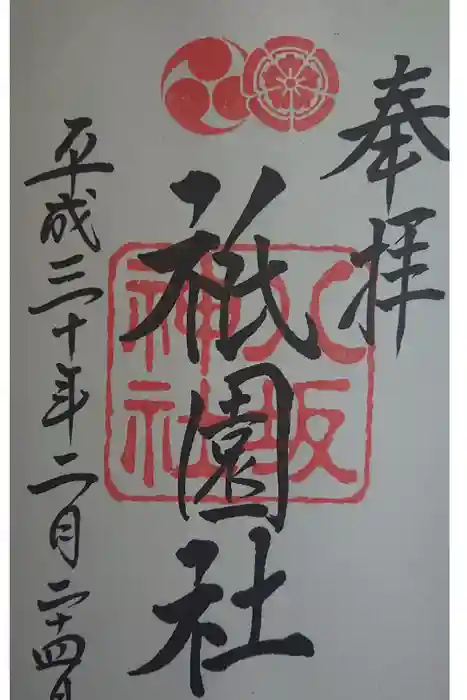 奉拝
八坂神社
祇園社
平成三十年二月二十四日